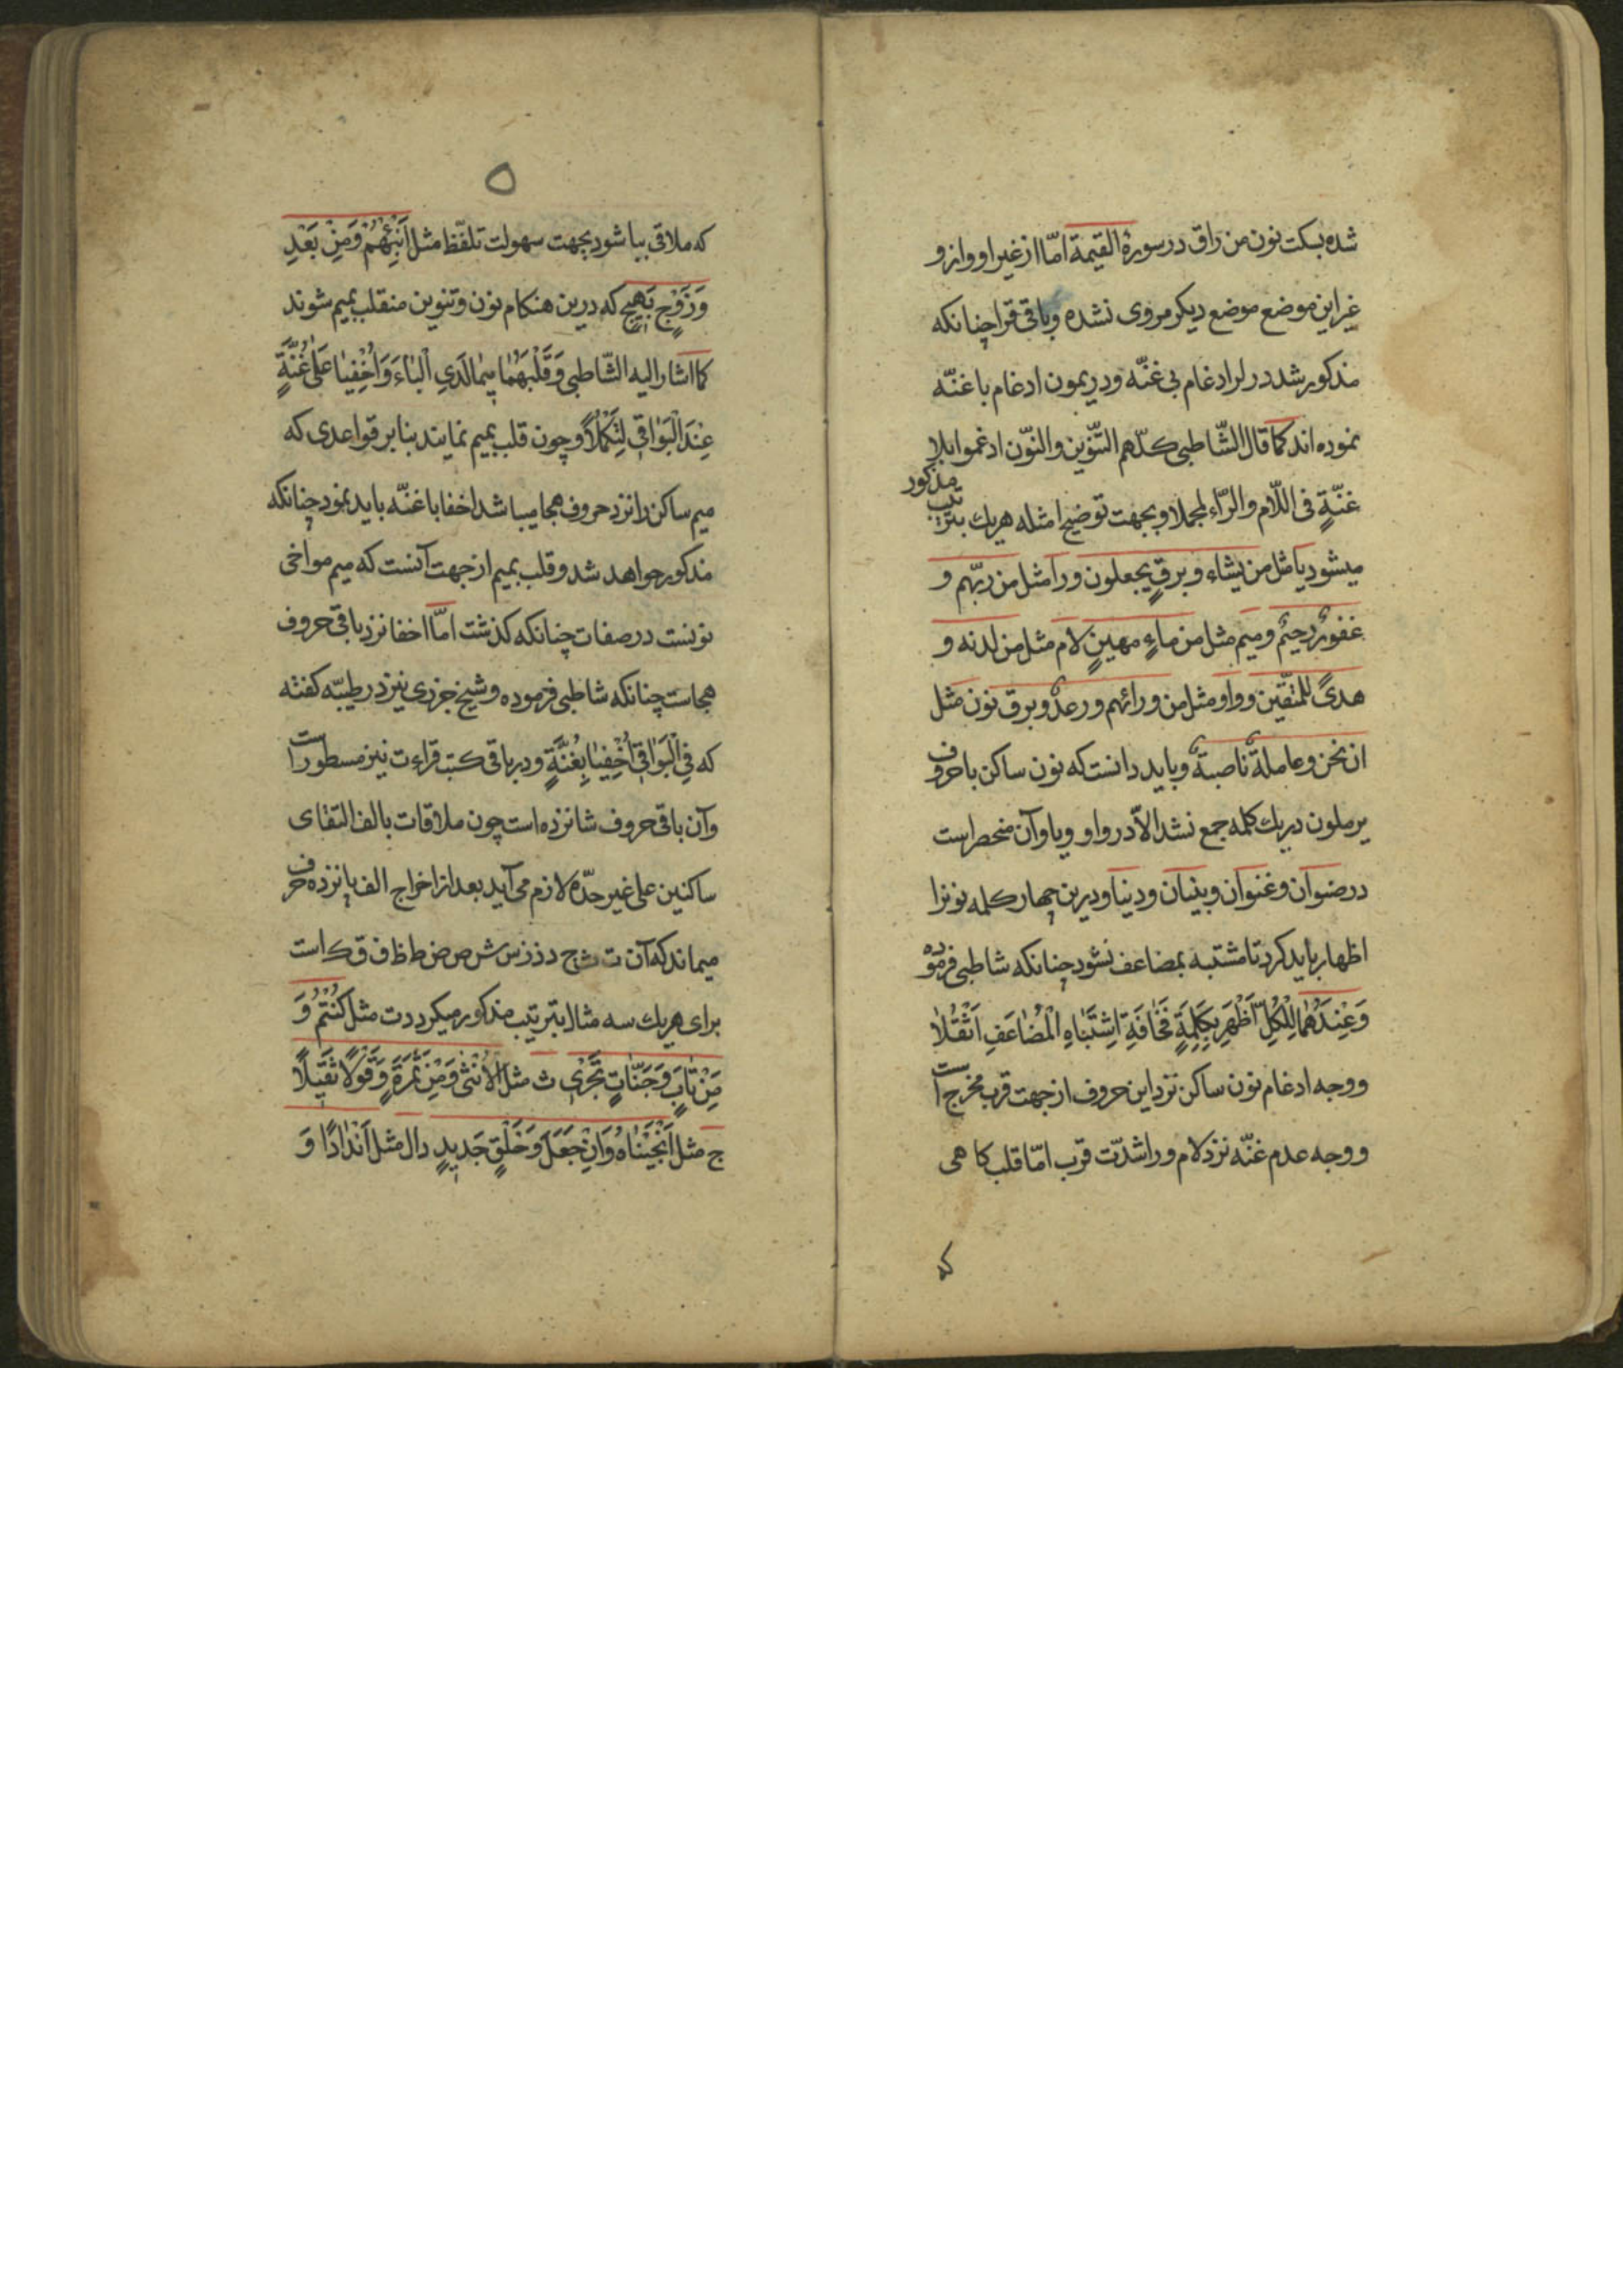 شده بسکت نون من راق در سورة القیمة امّا از غیر او و ازو
غیر این موضع موضع دیکر مروی نشده و باقی قرا چنانکه
مذکور شد در لر ادغام بی غنّه و در یمون ادغام با غنّه
نموده اند کما قال الشّاطبی کلّهم التّنوین والنّون ادغموا بلا
غنّةٍ فی اللّام والرّاء لیجملا و بجهت توضیح امثله هریك بترتیب مذکور
میشود یا مثل من یشاء و برقٍ یجعلون و را مثل من ربّهم و
غفورٌ رحیمٌ و میم مثل من ماءٍ مهینٍ لام مثل من لدنه و
هدیً للمتّقین و واو مثل من ورائهم و رعدٌ و برق نون مثل
ان نحن و عاملةٌ ناصبةٌ و باید دانست که نون ساکن با حروف
یرملون در یك کلمه جمع نشد الّا در واو و یا و آن منحصر است
در صنوان و غنوان و بنیان و دنیا و درین چهار کلمه نونرا
اظهار باید کرد تا مشتبه بمضاعف نشود چنانکه شاطبی فرموده
وَعِنْدَهُمَا لِلْکُلِّ اَظْهِرِ بِکَلِمَةٍ مَخَافَةِ اِشْتِبَاهِ الْمُضَاعَفِ اَثْقَلَا
و وجه ادغام نون ساکن نزد این حروف از جهت قرب مخرج است
و وجه عدم غنّه نزد لام و را شدّت قرب امّا قلب کاهی
که
٥
که ملاقی ببا شود بجهت سهولت تلفّظ مثل اَنْبِئْهُمْ وَمِنْ بَعْدِ
وَزَوْجٍ بَهِیجٍ که درین هنکام نون و تنوین منقلب بمیم شوند
کما اشار الیه الشّاطبی وَقَلْبَهُمَا مِیمًا لَدَی الْبَاءِ وَاُخْفِیَا عَلَی غُنَّةٍ
عِنْدَ الْبَوَاقِی لِتَکْمُلَا و چون قلب بمیم نمایند بنا بر قواعدی که
میم ساکن را نزد حروف هجا میباشد اخفا با غنّه باید نمود چنانکه
مذکور خواهد شد و قلب بمیم از جهت آنست که میم مواخی
نونست در صفات چنانکه کذشت امّا اخفا نزد باقی حروف
هجاست چنانکه شاطبی فرموده و شیخ جزری نیز در طیبّه کفته
که فِی الْبَوَاقِی اُخْفِیَا بِغُنَّةٍ و در باقی کتب قراءت نیز مسطور است
و آن باقی حروف شانزده است چون ملاقات بالف التقای
ساکنین علی غیر حدّه لازم می آید بعد از اخراج الف پانزده حرف
میماند که آن ت ث ج د ذ ز س ش ص ض ط ظ ف ق ك است
برای هریك سه مثال بترتیب مذکور میکردد ت مثل کُنْتُمْ وَ
مَنْ تَابَ وَجَنَّاتٍ تَجْرِی ث مثل الْاُنْثَی وَمِنْ ثَمَرَةٍ وَقَوْلًا ثَقِیلًا
ج مثل اَنْجَیْنَاهُ وَاِنْ جَعَلَ وَخَلْقٍ جَدِیدٍ دال مثل اَنْدَادًا وَ